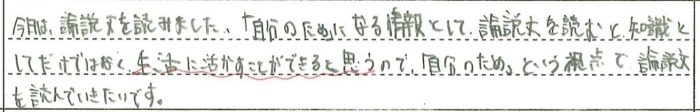 今日は、論説文を読みました。「自分のためになる情報として、論説文を読むと、知識と
してだけではなく、生活に活かすことができると思うので、「自分のため」という視点で論説文
を読んでいきたいです。